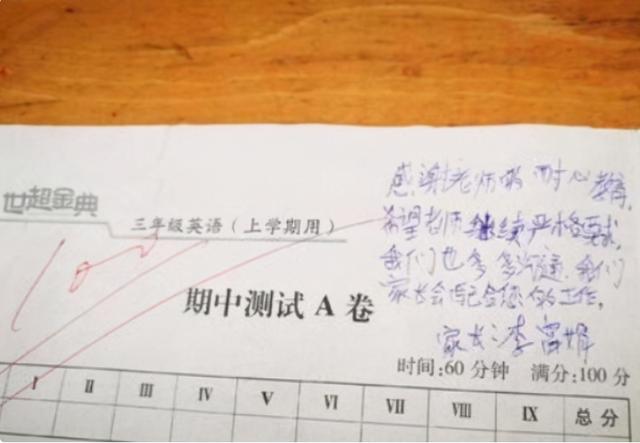 感谢老师的耐心教育,
世超金典
三年级英语(上学期用)
希望老师继续严格要求,
100
我们也多多沟通,我们
期中测试 A 卷
家长会配合您的工作。
家长:李富娟
时间:60 分钟 满分:100 分
I II III IV V VI VII VIII IX 总 分